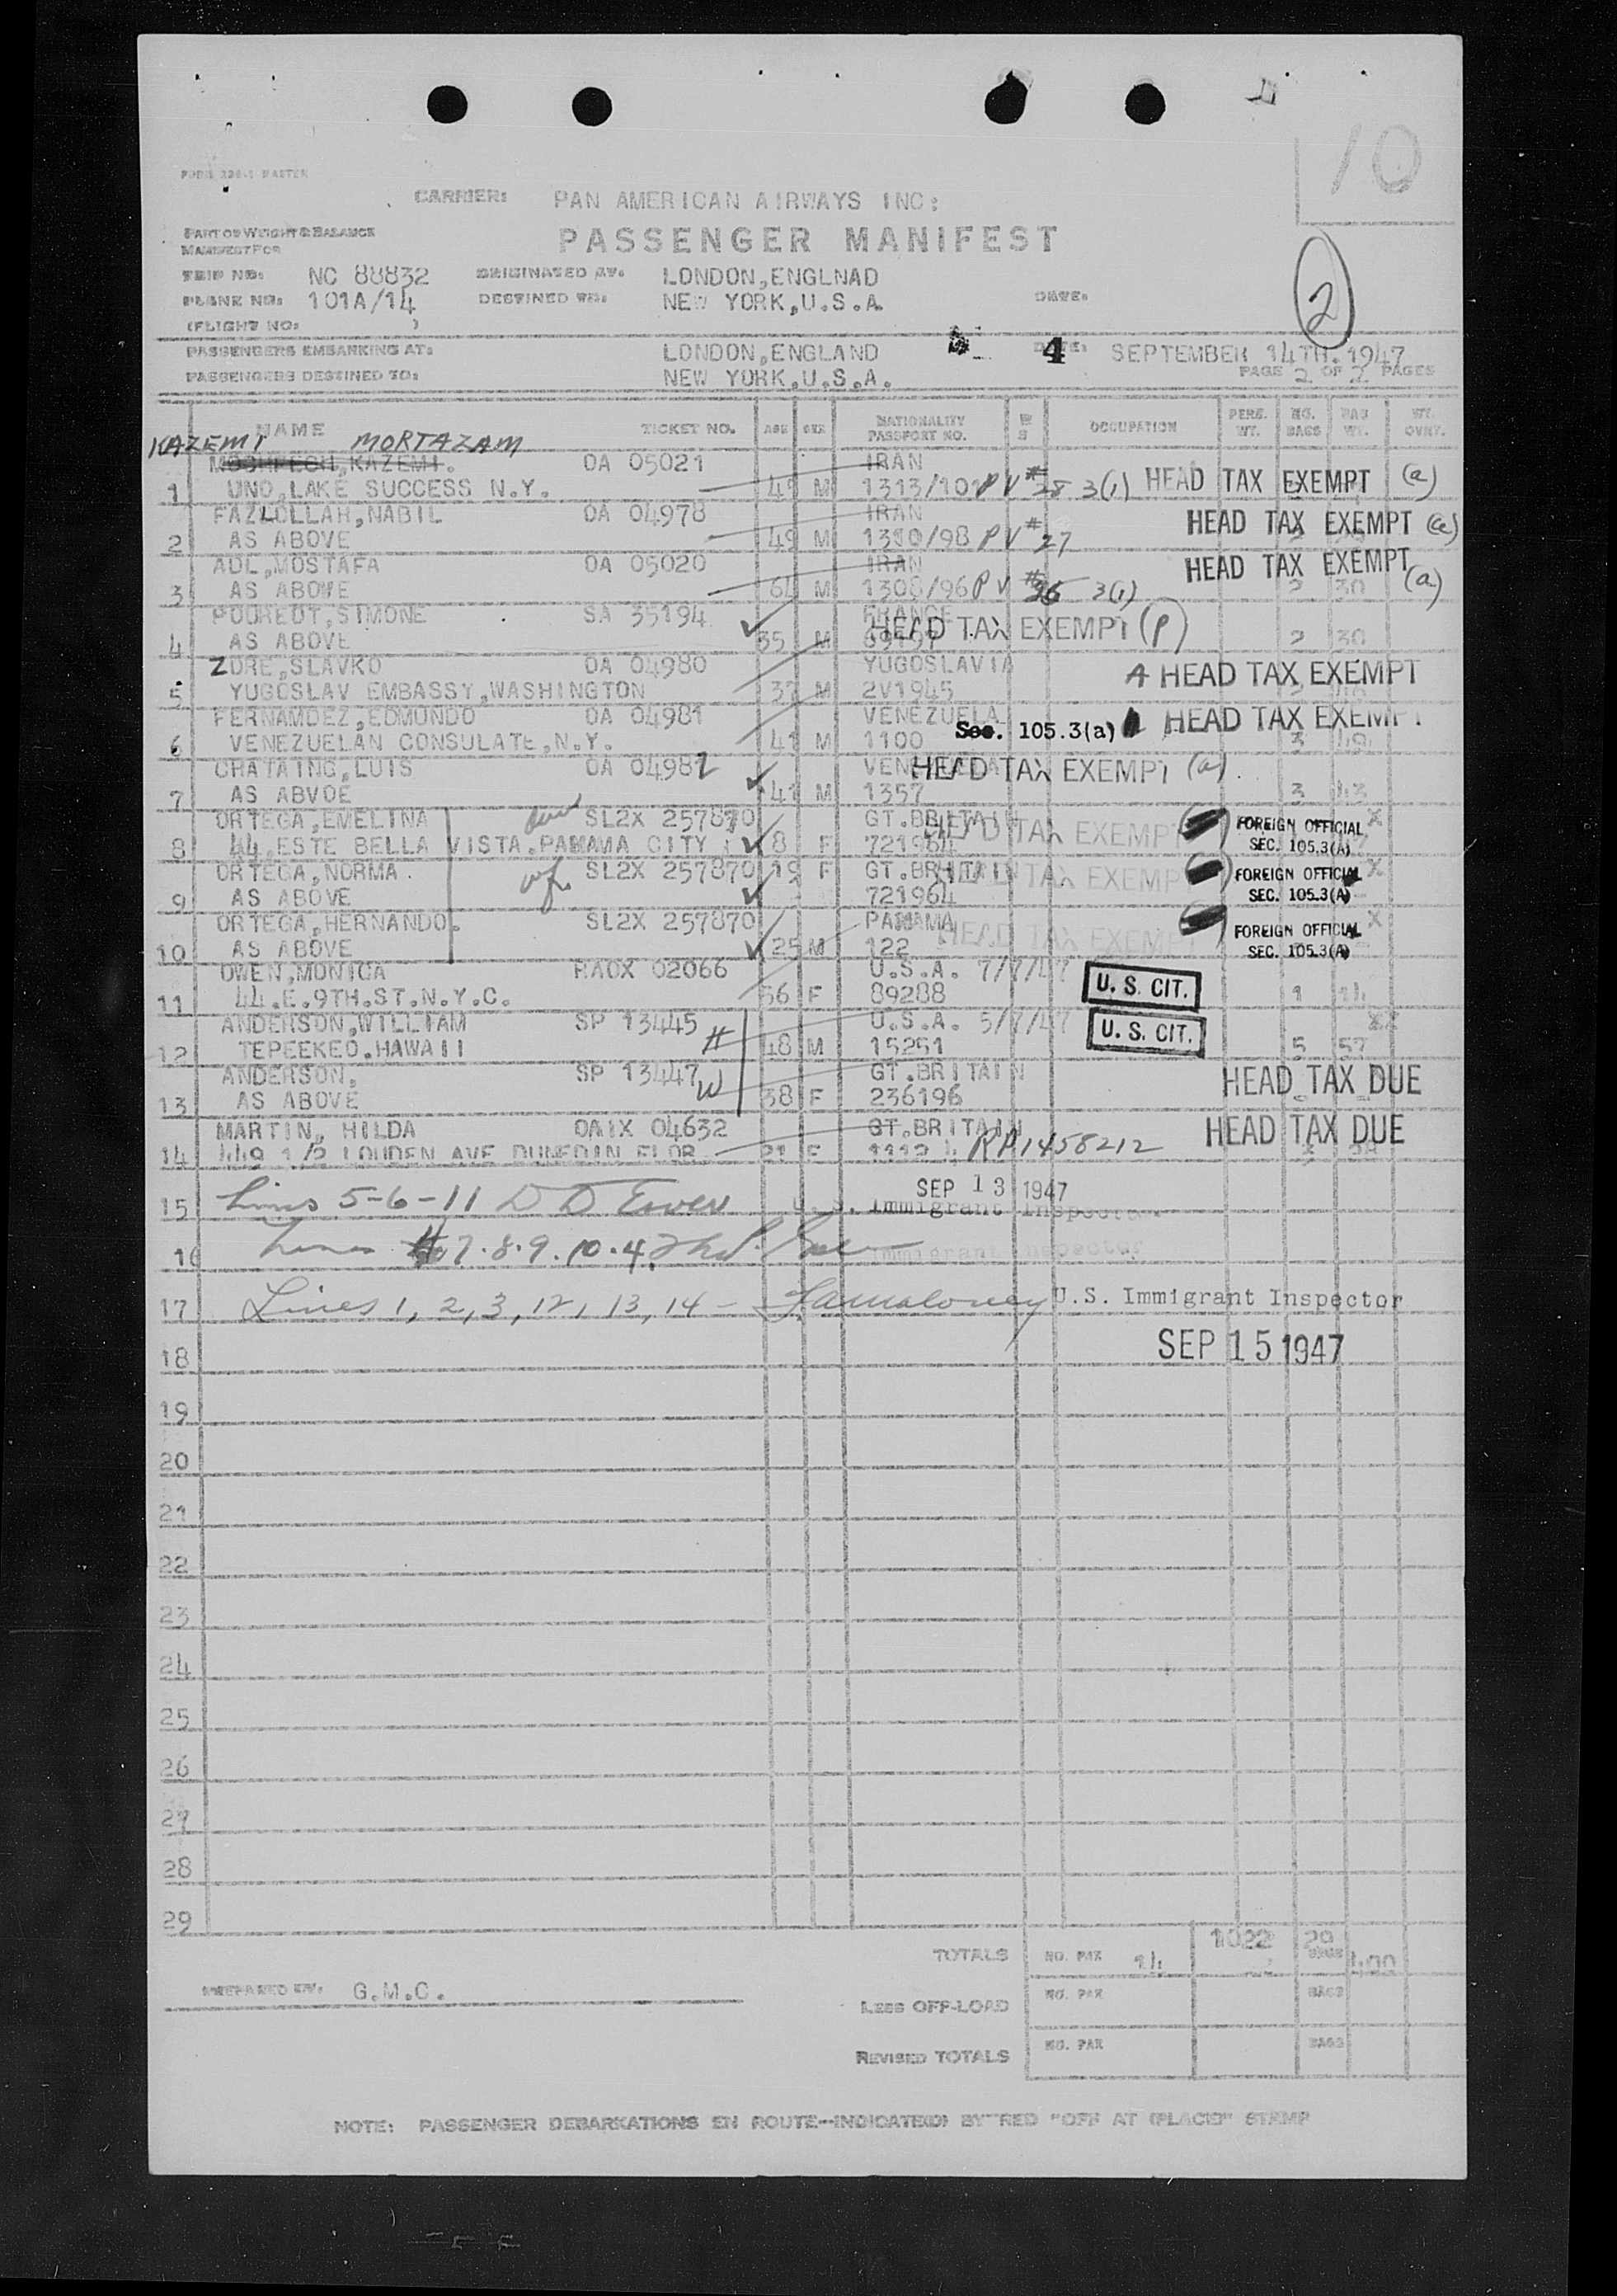 10
CARRIER: PAN AMERICAN AIRWAYS INC:
PART OF WEIGHT & BALANCE
MANIFEST FOR
PASSENGER MANIFEST
TRIP NO: NC 88832 ORIGINATED AT: LONDON,ENGLNAD
PLANE NO: 101A/14 DESTINED TO: NEW YORK,U.S.A. DATE:
(FLIGHT NO: )
2
PASSENGERS EMBARKING AT: LONDON,ENGLAND 4 DATE: SEPTEMBER 14TH.1947
PASSENGERS DESTINED TO: NEW YORK,U.S.A. PAGE 2 OF 2 PAGES
NAME TICKET NO. AGE SEX NATIONALITY PASSPORT NO. OCCUPATION PERS. WT. NO. BAGS BAG WT. WT. OVWT.
KAZEMI MORTAZAM
KAZEMI. OA 05021 IRAN
1 UNO,LAKE SUCCESS N.Y. M 1313/101 PV # 28 3(1) HEAD TAX EXEMPT (a)
FAZLOLLAH,NABIL OA 04978 IRAN
2 AS ABOVE 49 M 1310/98 PV # 27 HEAD TAX EXEMPT (a)
ADL,MOSTAFA OA 05020 IRAN
3 AS ABOVE M 1308/96 PV # 3(1) HEAD TAX EXEMPT (a) 2 30
POUREDT,SIMONE SA 35194 FRANCE
4 AS ABOVE 35 M HEAD TAX EXEMPT (P) 2 30
ZORE,SLAVKO OA 04980 YUGOSLAVIA
5 YUGOSLAV EMBASSY,WASHINGTON 37 M 2V1945 A HEAD TAX EXEMPT
FERNAMDEZ,EDMUNDO OA 04981 VENEZUELA
6 VENEZUELAN CONSULATE,N.Y. 41 M 1100 Sec. 105.3(a) HEAD TAX EXEMPT 3 49
CHATAING,LUIS OA 04982 HEAD TAX EXEMPT (a)
7 AS ABVOE 41 M 1357 3 43
ORTEGA,EMELINA SL2X 257870 GT.BRITAIN HEAD TAX EXEMPT FOREIGN OFFICIAL X
8 44 ESTE BELLA VISTA.PANAMA CITY 8 F 721964 SEC. 105.3(A)
ORTEGA,NORMA wf. SL2X 257870 19 F GT.BRITAIN HEAD TAX EXEMPT FOREIGN OFFICIAL X
9 AS ABOVE 721964 SEC. 105.3(A)
ORTEGA,HERNANDO. SL2X 257870 PANAMA HEAD TAX EXEMPT FOREIGN OFFICIAL X
10 AS ABOVE 25 M 122 SEC. 105.3(A)
OWEN,MONICA HAOX 02066 U.S.A. 7/7/47
11 44.E.9TH.ST.N.Y.C. 56 F 89288 U. S. CIT. 1 14
ANDERSON,WILLIAM SP 13445 U.S.A. 5/7/47
12 TEPEEKEO.HAWAII H 48 M 15251 U. S. CIT. 5 57
ANDERSON, SP 13447 GT.BRITAIN
13 AS ABOVE W 38 F 236196 HEAD TAX DUE
MARTIN, HILDA OAIX 04632 GT.BRITAIN
14 449 1/2 LOUDEN AVE DUNEDIN FLOR 21 F RP1458212 HEAD TAX DUE
SEP 13 1947
15 Lines 5-6-11 D D Ewen U. S. Immigrant Inspector
16 Lines 7.8.9.10.4. Immigrant Inspector
17 Lines 1, 2, 3, 12, 13, 14 - Famaloney U.S. Immigrant Inspector
SEP 15 1947
18
19
20
21
22
23
24
25
26
27
28
29
TOTALS NO. PAX 14 1022 29 BAGS 400
PREPARED BY: G.M.C.
LESS OFF-LOAD NO. PAX BAGS
REVISED TOTALS NO. PAX BAGS
NOTE: PASSENGER DEBARKATIONS EN ROUTE--INDICATE(D) BY "RED "OFF AT (PLACE)" STAMP